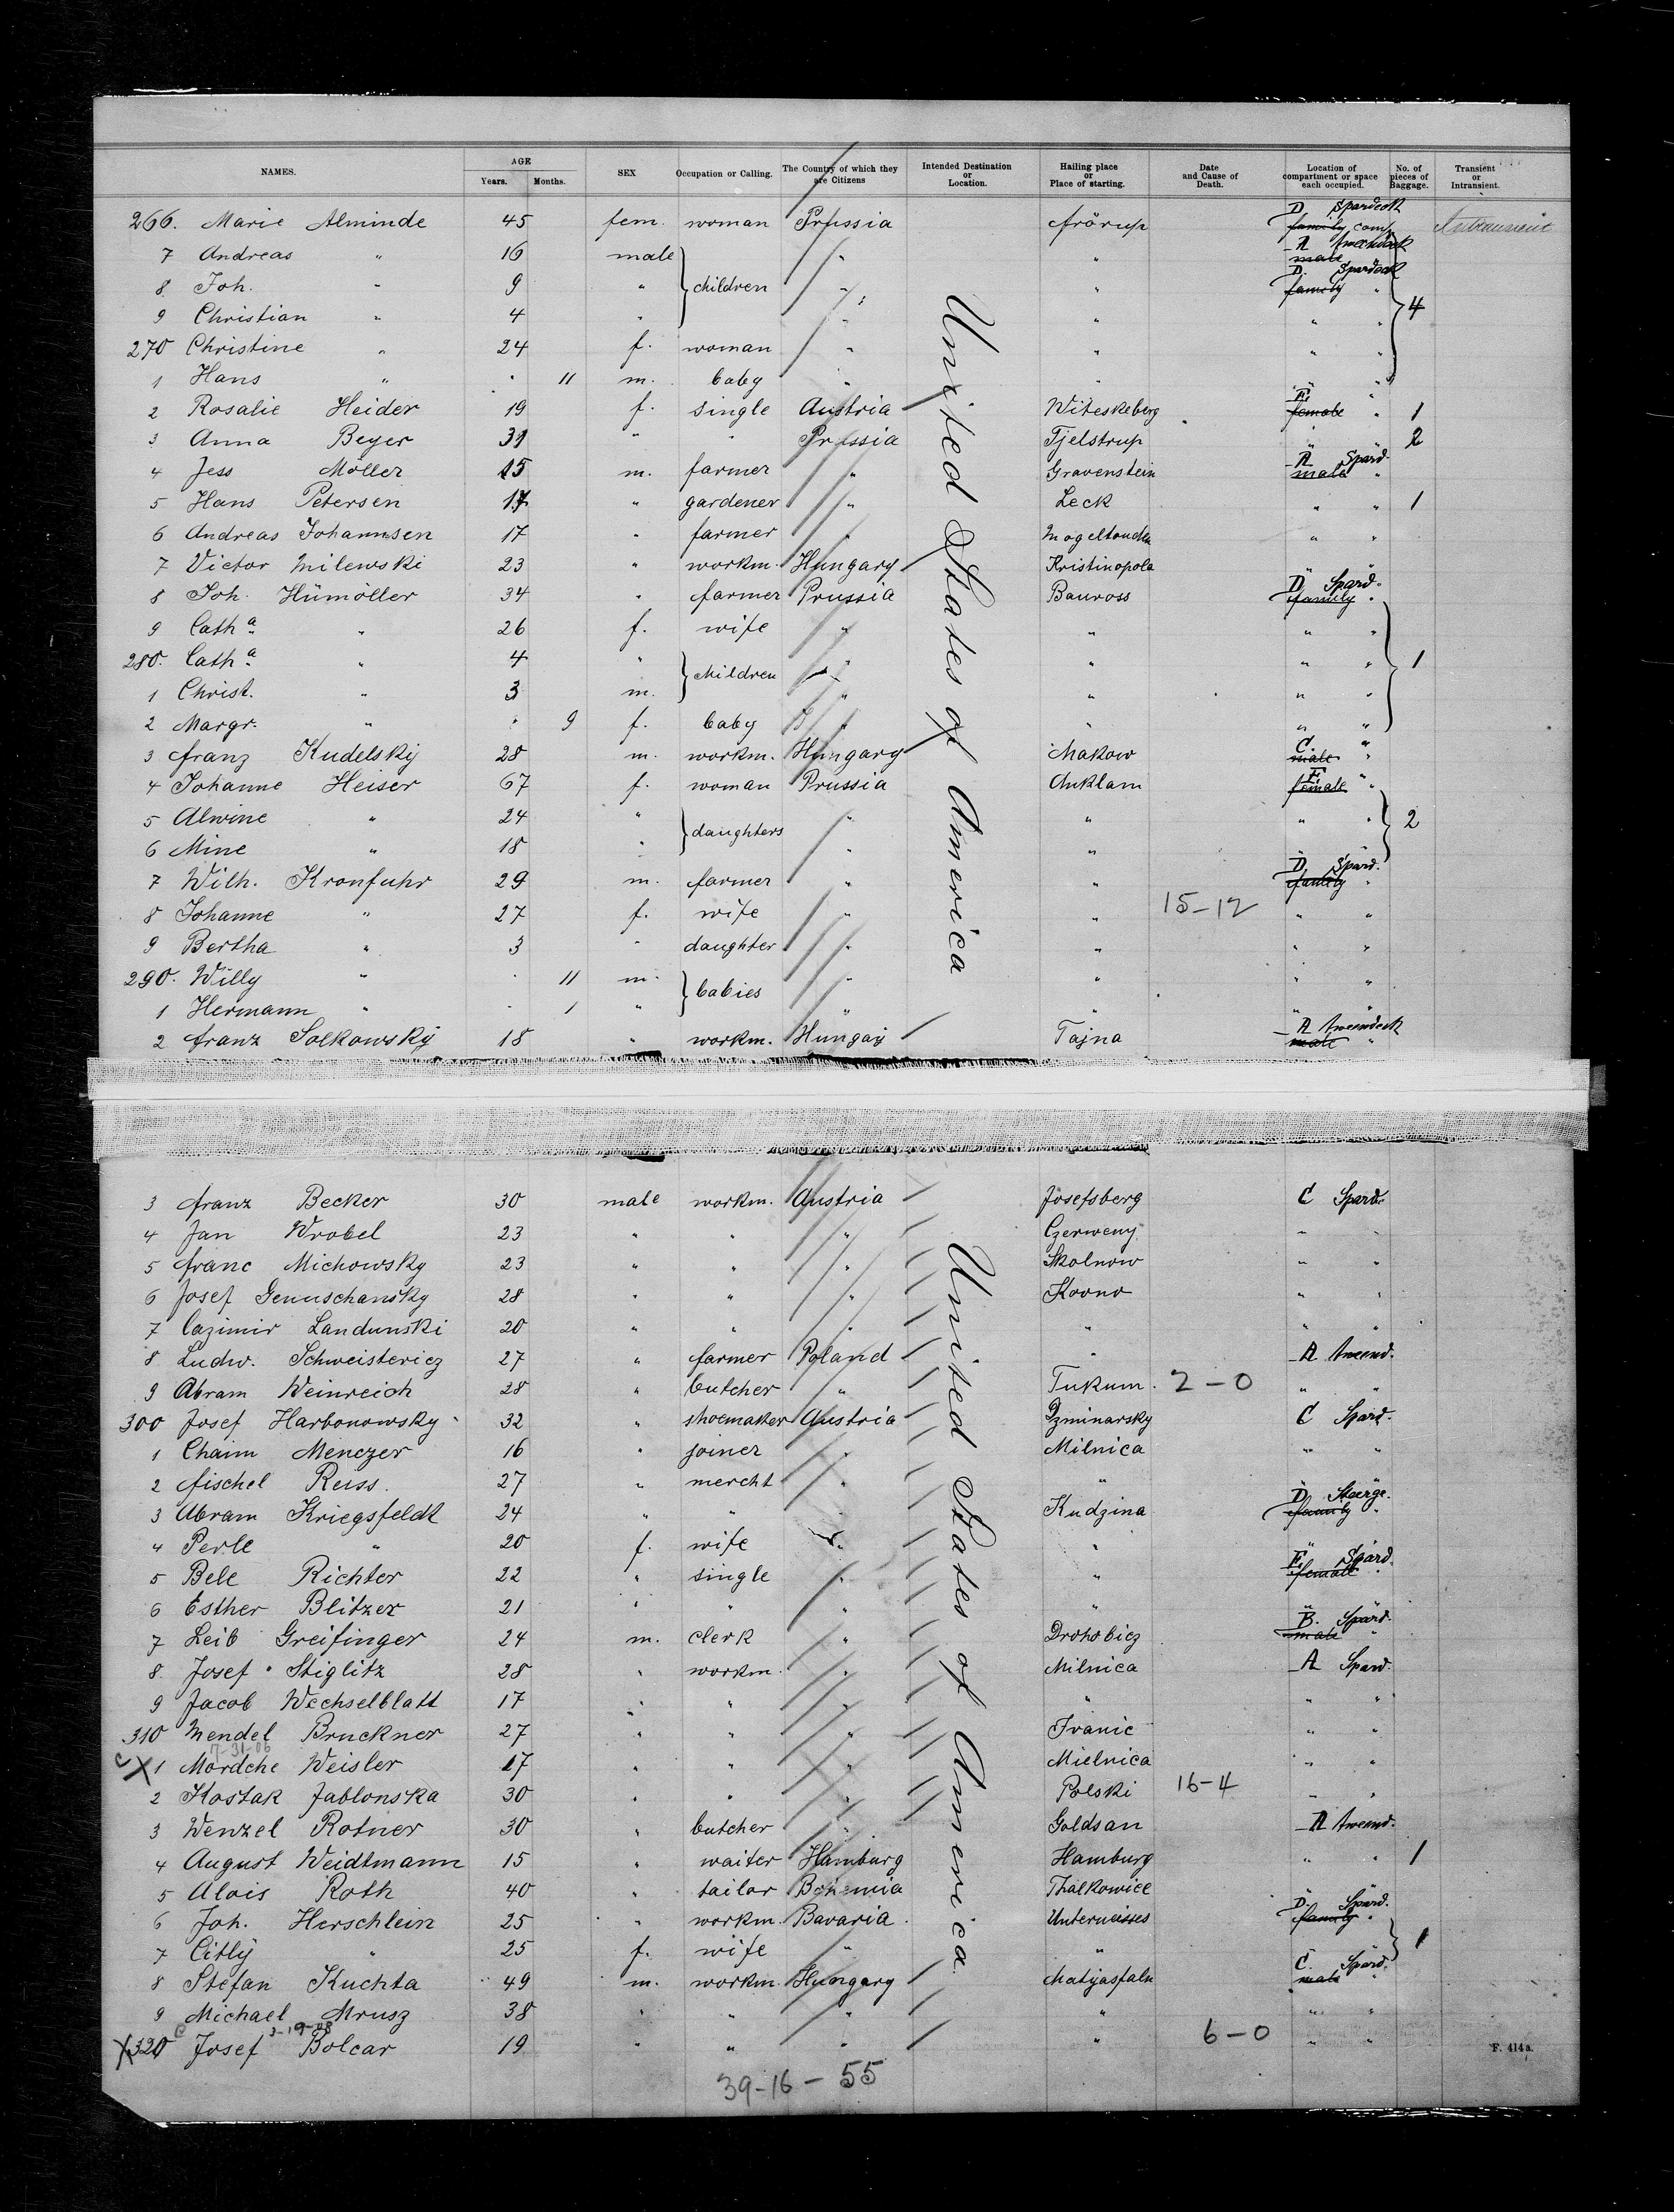 NAMES. AGE Years. Months. SEX Occupation or Calling. The Country of which they are Citizens Intended Destination or Location. Hailing place or Place of starting. Date and Cause of Death. Location of compartment or space each occupied. No. of pieces of Baggage. Transient or Intransient.
266. Marie Alminde 45 fem. woman Prussia Frörup D Spardeck family comp
7 Andreas " 16 male " " A male
8 Joh. " 9 " children " " D. Spardeck family "
9 Christian " 4 " " " " " 4
270 Christine " 24 f. woman " " " "
1 Hans " . 11 m. baby " " " "
2 Rosalie Heider 19 f. single Austria Witeskeberg F. female " 1
3 Anna Beyer 31 " " Prussia Tjelstrup " 2
4 Jess Möller 15 m. farmer " Gravenstein A Spard. male "
5 Hans Petersen 17 " gardener " Leck " " 1
6 Andreas Johannsen 17 " farmer " " "
7 Victor Milewski 23 " workm. Hungary Kristinopola " "
8 Joh. Hümöller 34 " farmer Prussia Bauross D Spard. family "
9 Catha " 26 f. wife " " " "
280. Catha " 4 " children " " " " 1
1 Christ. " 3 m. " " " "
2 Margr. " . 9 f. baby " " " "
3 Franz Kudelsky 28 m. workm. Hungary Makow C. male "
4 Johanne Heiser 67 f. woman Prussia Anklam F. female "
5 Alwine " 24 " daughters " " " " 2
6 Mine " 18 " " " " "
7 Wilh. Kronfuhr 29 m. farmer " " D Spard. family "
8 Johanne " 27 f. wife " " 15-12 " "
9 Bertha " 3 " daughter " " " "
290. Willy " . 11 m. babies " " " "
1 Hermann " . 1 " " " " "
2 Franz Solkowsky 18 " workm. Hungary Tajna A male "
United States of America
3 Franz Becker 30 male workm. Austria Josefsberg C Spard.
4 Jan Wrobel 23 " " " Czerweny " "
5 Franc Michowsky 23 " " " Skolnow " "
6 Josef Genuschansky 28 " " " Kovno " "
7 Cazimir Landunski 20 " " " " " "
8 Ludw. Schweistericz 27 " farmer Poland " A
9 Abram Weinreich 28 " butcher " Tukum. 2-0 " "
300 Josef Harbonowsky 32 " shoemaker Austria Dzminarsky C Spard.
1 Chaim Menczer 16 " joiner " Milnica " "
2 Fischel Reiss. 27 " mercht " " " "
3 Abram Kriegsfeldt 24 " " " Kudzina D. family "
4 Perle " 20 f. wife " " " "
5 Bele Richter 22 " single " " F. Spard. female "
6 Esther Blitzer 21 " " " " " "
7 Leib Greifinger 24 m. clerk " Drohobicz B. Spard. male "
8. Josef Stiglitz 28 " workm. " Milnica A Spard.
9 Jacob Wechselblatt 17 " " " " " "
310 Mendel Bruckner 27 " " " Ivanic " "
7-31-06
c X 1 Mordche Weisler 17 " " " Mielnica " "
2 Kostak Jablonska 30 " " " Polski 16-4 " "
3 Wenzel Rotner 30 " butcher " Goldsan A
4 August Weidtmann 15 " waiter Hamburg Hamburg " " 1
5 Alois Roth 40 " tailor Bohemia Thalkowice " "
6 Joh. Herschlein 25 " workm. Bavaria. Unterneisses D. Spard. family "
7 Citly " 25 f. wife " " 1
8 Stefan Kuchta 49 m. workm. Hungary Matyasfalu C. Spard. male "
9 Michael Mrusz 38 " " " " " "
3-19-08
X 320 Josef Bolcar 19 " " " " 6-0 " "
United States of America.
F. 414a.
39-16-55